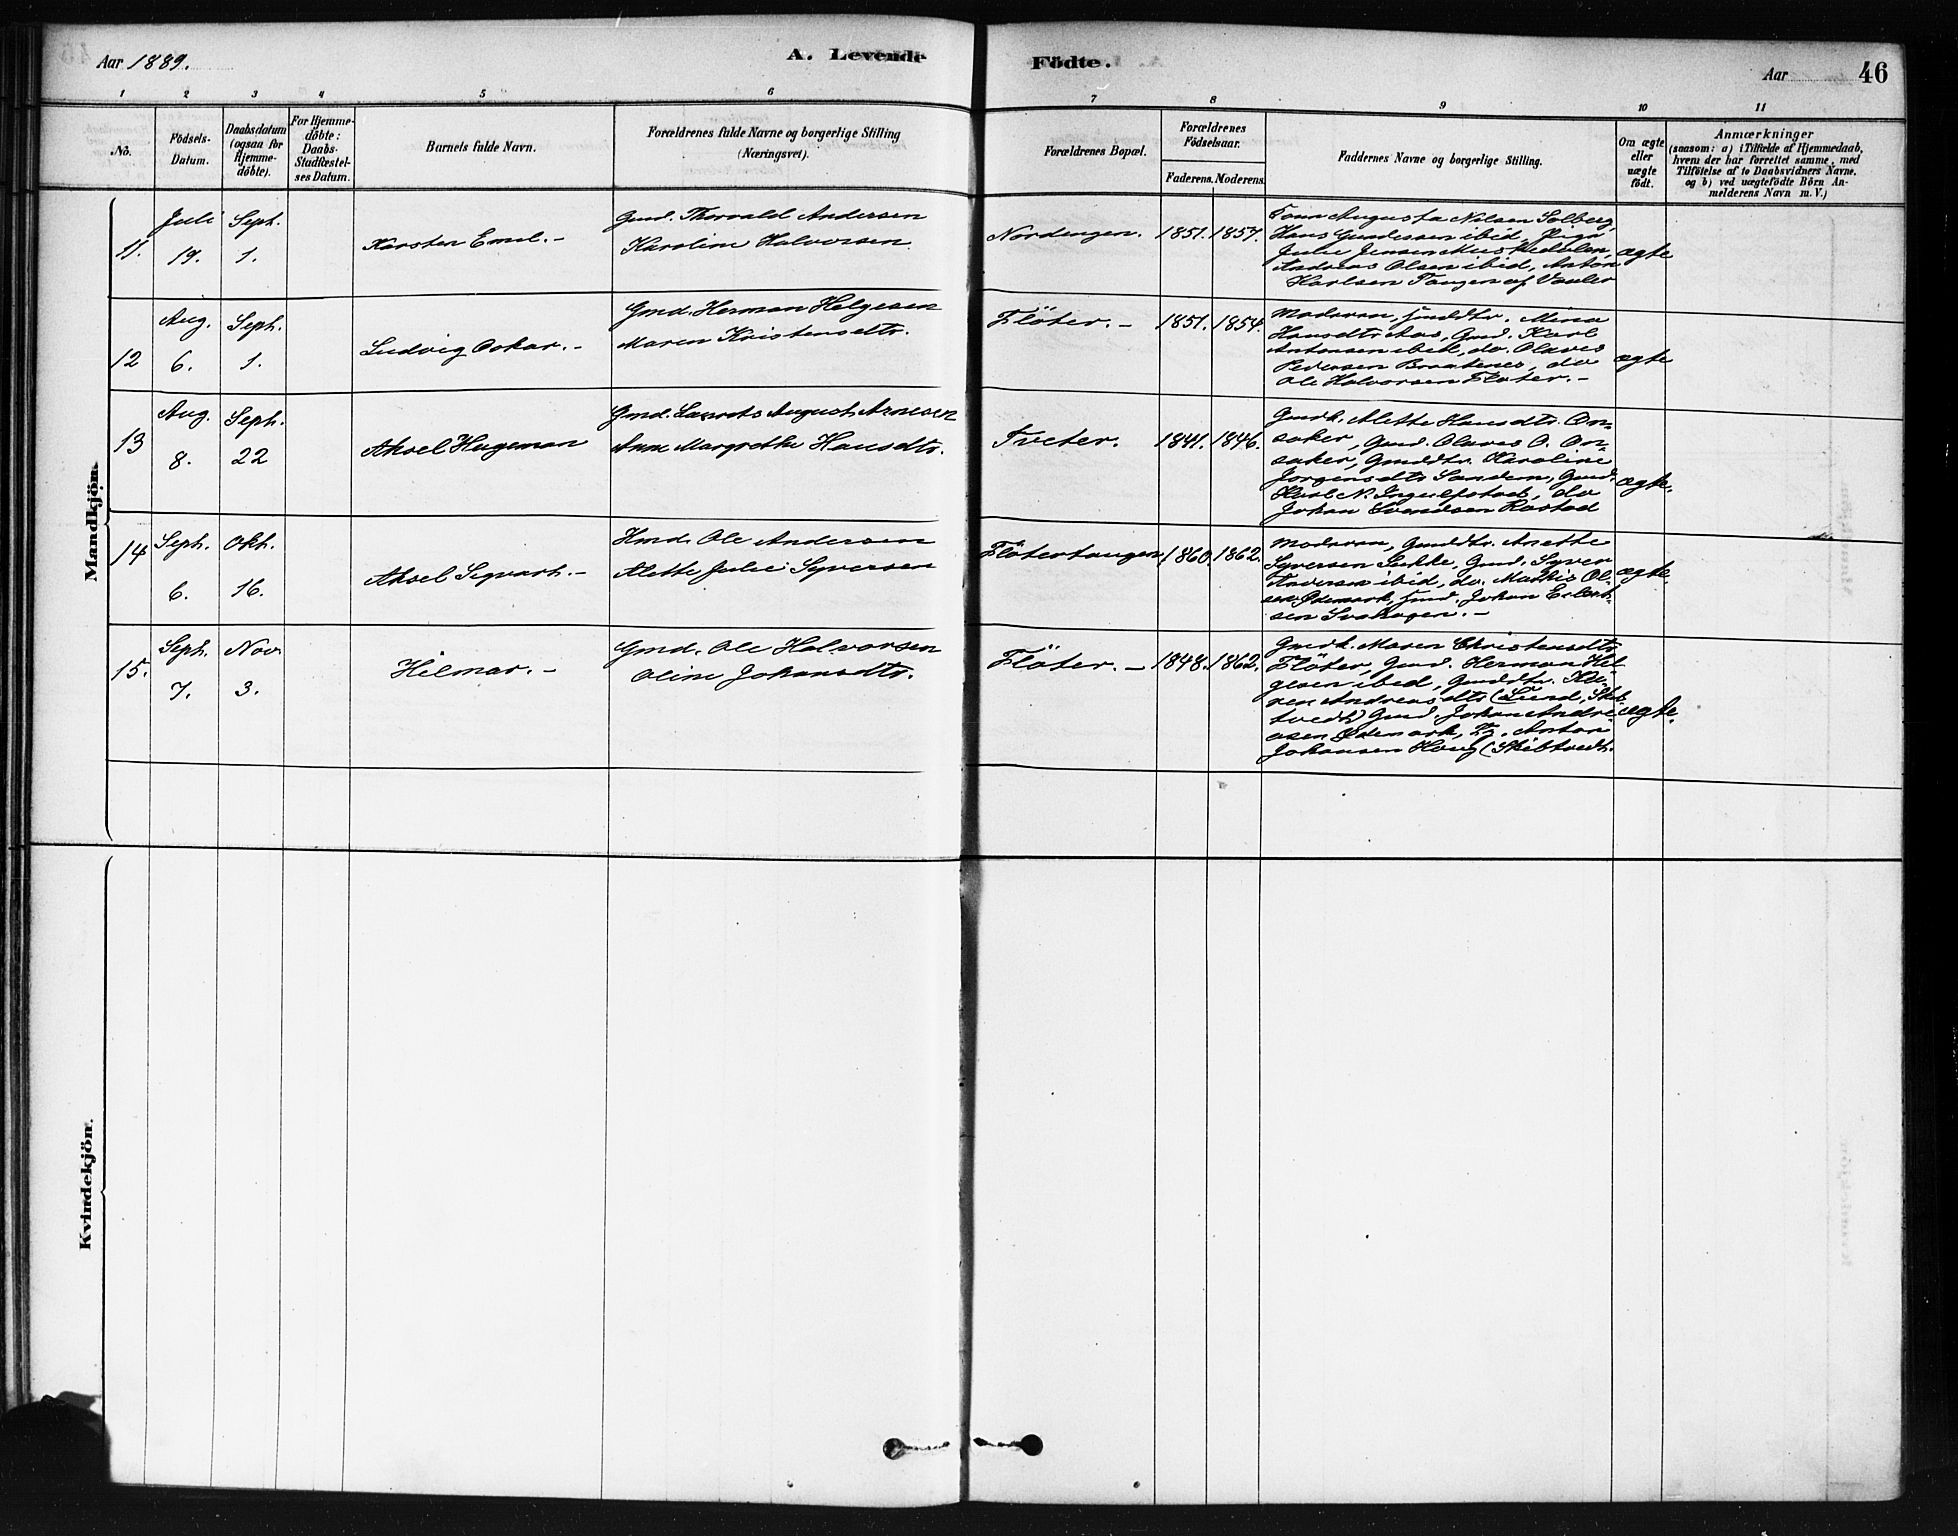 Aar 1889.
A. Levende
Födte.
Aar
46
1 2 3 4 5 6 7 8 9 10 11
No.
Födsels-
Datum.
Daabsdatum
(ogsaa for
Hjemme-
döbte).
For Hjemme-
döbte:
Daabs-
Stadfæstel-
ses Datum.
Barnets fulde Navn.
Forældrenes fulde Navne og borgerlige Stilling
(Næringsvei).
Forældrenes Bopæl.
Forældrenes
Födselsaar.
Faderens. Moderens.
Faddernes Navne og borgerlige Stilling.
Om ægte
eller
uægte
födt.
Anmærkninger
(saasom: a) i Tilfælde af Hjemmedaab,
hvem der har forrettet samme, med
Tilföielse af to Daabsvidners Navne.
og b) ved uægtefödte Börn An-
melderens Navn m. V.)
Mandkjön.
11.
Juli
19.
Sept.
1.
Karsten Emil.-
Gmd. Thorvald Andersen
Karoline Halvorsen.
Nordengen.
1851. 1857.
Augusta Nilsen Solberg,
Hans Gundersen ibid, Pige
Julie Jensen
Andreas Olsen ibid, Anton
Karlsen Tangen af Vaaler
ægte
12
Aug.
6.
Sept.
1.
Ludvig Oskar.-
Gmd. Herman Helgesen
Maren Kristensdtr.
Flöter.-
1851. 1854.
Moderen, Mina
Hansdtr Aas, Gmd. Karl
Antonsen ibid, do. Olaves
Pedersen Braatenes, do
Ole Halvorsen Flöter.-
ægte
13
Aug.
8.
Sept.
22
Aksel Hageman
Gmd. Laurits August Arnesen
Anne Margrethe Hansdtr.
Tveter.
1841. 1846.
Gmdk. Alette Hansdtr. On-
saker, Gmd. Olaves O. On-
saker, Gmddtr. Karoline
Jörgensdtr Sandem, Gmd.
Karl N. Ingulfstad, do
Johan Svendsen Rostad
ægte.
14
Sept.
6.
Okt.
16.
Aksel Sigvart.-
Hmd. Ole Andersen
Alette Julie Syversen
Flötertangen
1860. 1862.
Moderen, Gmddtr. Anette
Syversen Sukke, Gmd. Syver
Andersen ibid, do. Mathis Ol-
sen Ödemark, Johan Eilert-
sen
ægte.
15.
Sept.
7.
Nov
3.
Hilmar.-
Gmd. Ole Halvorsen
Oline Johansdtr.
Flöter.-
1848. 1862.
Gmdk. Maren Christensdtr
Flöter, Gmd. Herman Hel-
gesen ibid, Gmddtr. Ka-
ren Andreasdtr (Lund, Skib-
tvedt) Gmd. Johan Andre-
asen Ödemark, Anton
Johansen Haug (Skibtvedt.
ægte.
Kvindekjön.